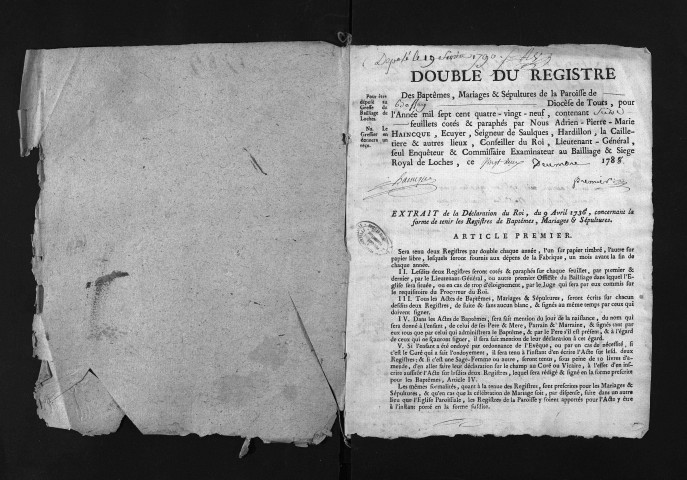 Deposé le 19 1790
DOUBLE DU REGISTRE
Des Baptêmes, Mariages & Sépultures de la Paroisse de
Diocèse de Tours, pour
l'Année mil sept cent quatre-vingt-neuf, contenant
feuillets cotés & paraphés par Nous Adrien-Pierre-Marie
HAINCQUE, Ecuyer, Seigneur de Saulques, Hardillon, la Caille-
tiere & autres lieux, Conseiller du Roi, Lieutenant-Général,
seul Enquêteur & Commissaire Examinateur au Bailliage & Siege
Royal de Loches, ce vingt deux Decembre 1788
Pour être
déposé au
Greffe du
Bailliage de
Loches.
Na. Le
Greffier en
donnera un
reçu.
Haincque
premier
EXTRAIT de la Déclaration du Roi, du 9 Avril 1736, concernant la
forme de tenir les Registres de Baptêmes, Mariages & Sépultures.
ARTICLE PREMIER.
Sera tenu deux Registres par double chaque année, l'un sur papier timbré, l'autre sur
papier libre, lesquels seront fournis aux dépens de la Fabrique, un mois avant la fin de
chaque année.
II. Lesdits deux Registres seront cotés & paraphés sur chaque feuillet, par premier &
dernier, par le Lieutenant-Général, ou autre premier Officier du Bailliage dans lequel l'E-
glise sera située, ou en cas de trop d'éloignement, par le Juge qui sera par eux commis sur
le requisitoire du Procureur du Roi.
III. Tous les Actes de Baptêmes, Mariages & Sépultures, seront écrits sur chacun
desdits deux Registres, de suite & sans aucun blanc, & signés au même temps par ceux qui
doivent signer.
IV. Dans les Actes de Baptêmes, sera fait mention du jour de la naissance, du nom qui
sera donné à l'enfant, de celui de ses Pere & Mere, Parrain & Marraine, & signés tant par
eux tous que par celui qui administrera le Baptême, & par le Pere s'il est présent, & à l'égard
de ceux qui ne sçauront signer, il sera fait mention de leur déclaration à cet égard.
V. Si l'enfant a été ondoyé par ordonnance de l'Evêque, ou par un cas de nécessité, si
c'est le Curé qui a fait l'ondoyement, il sera tenu à l'instant d'en écrire l'Acte sur lesd. deux
Registres; & si c'est une Sage-Femme ou autre, seront tenus, sous peine de 10 livres d'a-
mende, d'en aller faire leur déclaration sur le champ au Curé ou Vicaire, à l'effet d'en ins-
crire aussitôt l'Acte sur lesdits deux Registres, lequel sera rédigé & signé en la forme prescrite
pour les Baptêmes, Article IV.
Les mêmes formalités, quant à la tenue des Registres, sont prescrites pour les Mariages
& Sépultures, & qu'en cas que la célébration de Mariage soit, par dispense, faite dans un autre
lieu que l'Eglise Paroissiale, les Registres de la Paroisse y soient apportés pour l'Acte y être
à l'instant porté en la forme susdite.